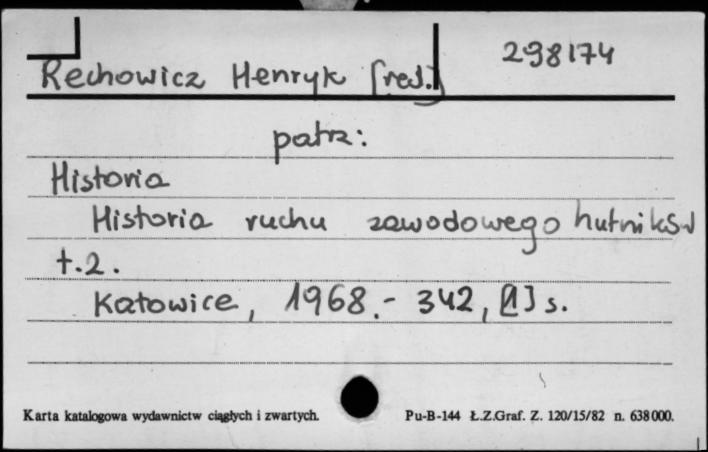 Rechowicz Henryk [red.] 298174
patrz:
Historia
Historia ruchu zawodowego hutników
t.2.
Katowice, 1968.- 342, [1] s.
Karta katalogowa wydawnictw ciągłych i zwartych. Pu-B-144 Ł.Z.Graf. Z. 120/15/82 n. 638000.